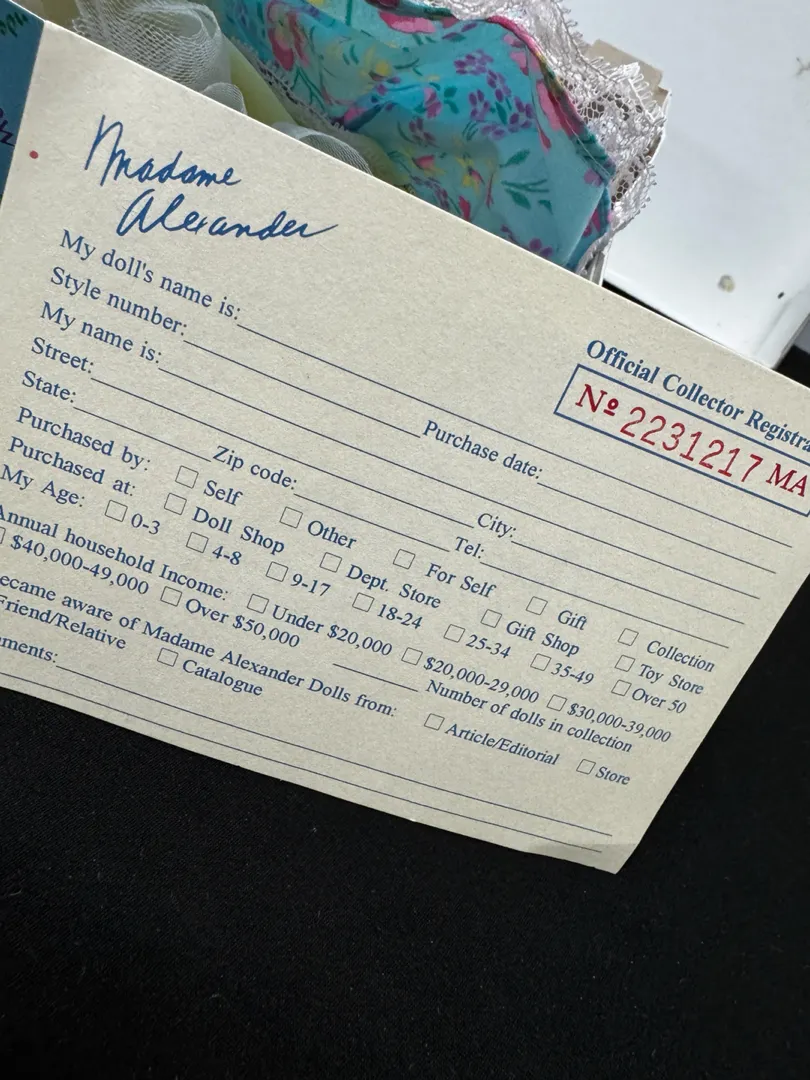 Madame
Alexander
Official Collector
Nº 2231217 MA
My doll's name is:
Style number: Purchase date:
My name is:
Street: City:
State: Zip code: Tel:
Purchased by: Self Other For Self Gift Collection
Purchased at: Doll Shop Dept. Store Gift Shop Toy Store
My Age: 0-3 4-8 9-17 18-24 25-34 35-49 Over 50
Annual household Income: Under $20,000 $20,000-29,000 $30,000-39,000
$40,000-49,000 Over $50,000 Number of dolls in collection
of Madame Alexander Dolls from: Article/Editorial Store
Friend/Relative Catalogue